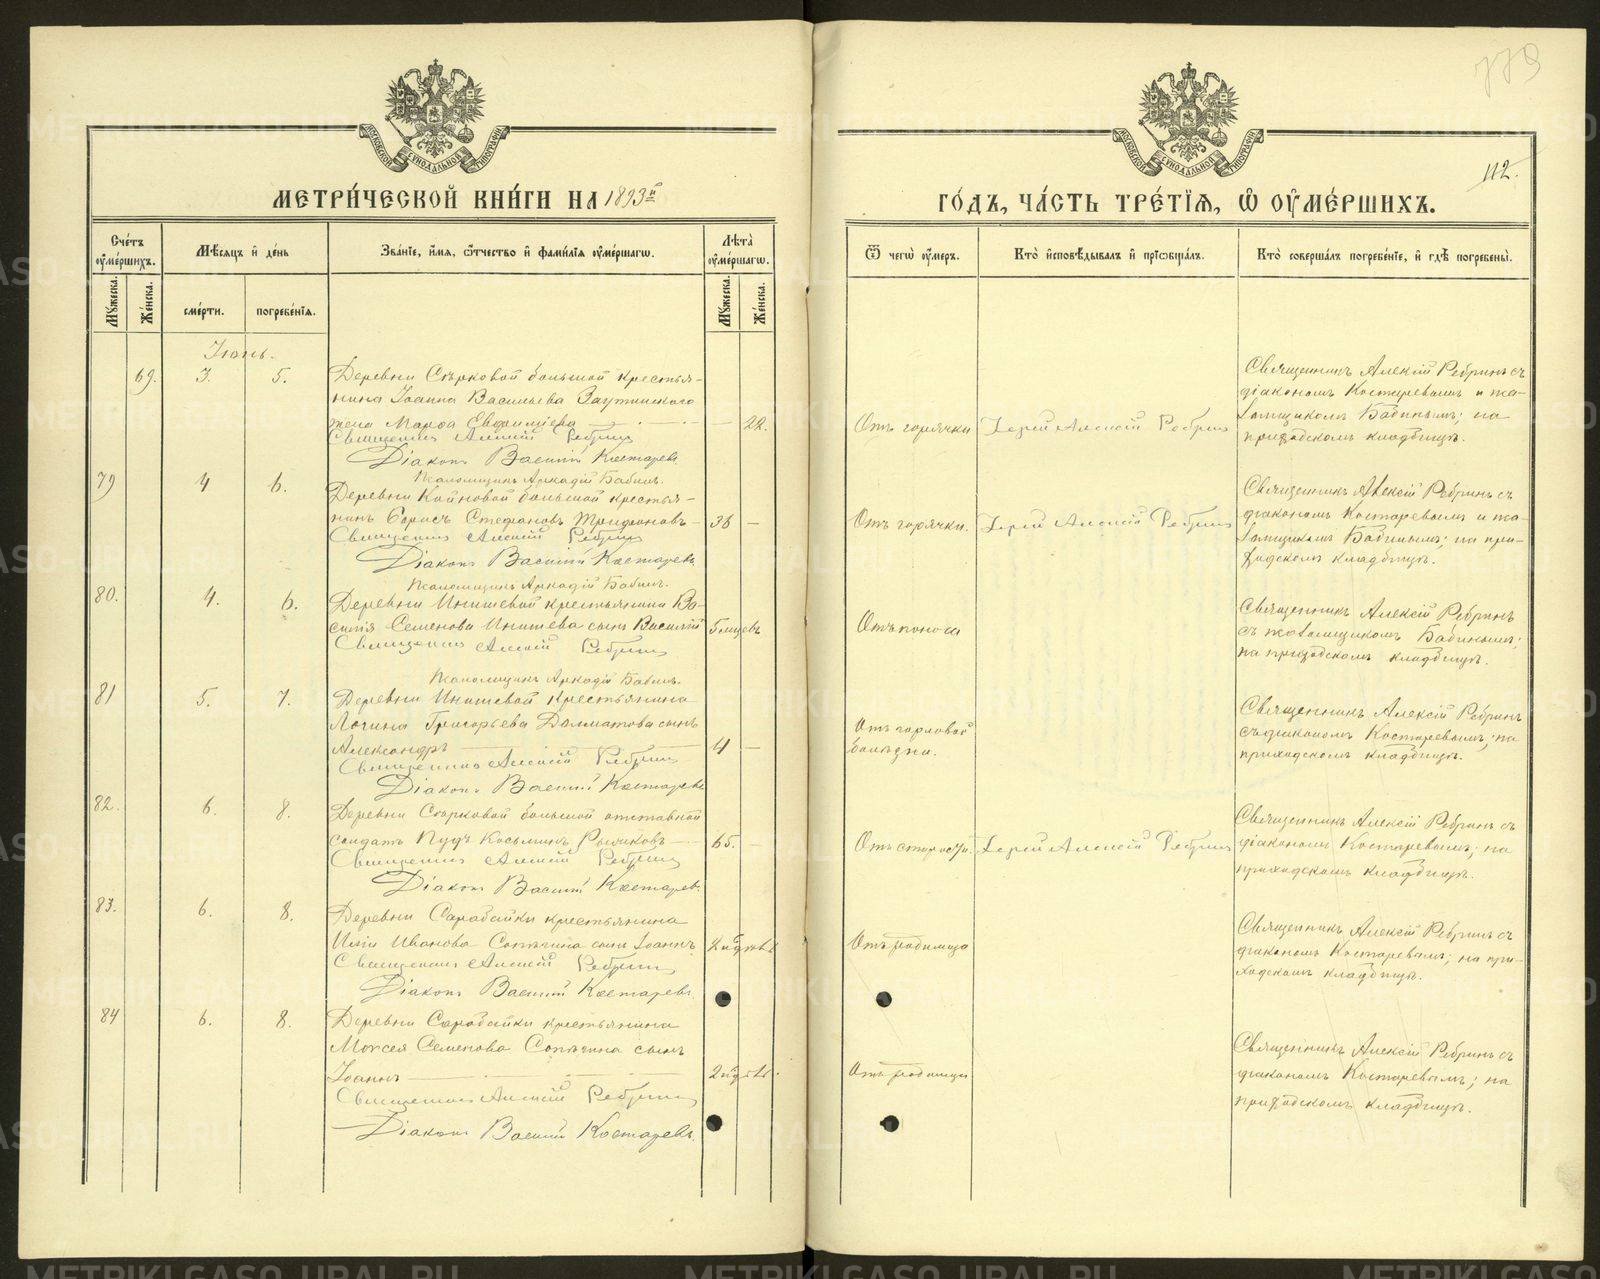 779
МОСКОВСКОЙ СѴНОДАЛЬНОЙ ТИПОГРАФІИ
МОСКОВСКОЙ СѴНОДАЛЬНОЙ ТИПОГРАФІИ
112.
МЕТРИ́ЧЕСКОЙ КНИ́ГИ НА 1893й
ГО́ДЪ, ЧА́СТЬ ТРЕ́ТЇѦ, Ѡ ОУ҆МЕ́РШИХЪ.
Сче́тъ оу҆ме́ршихъ.
Мꙋжеска.
Же́нска.
Мѣ́сѧцъ и҆ де́нь
сме́рти.
погребе́нїѧ.
Зва́нїе, и҆́мѧ, ѻ҆́тчество и҆ фами́лїѧ оу҆ме́ршагѡ.
Лѣ́та оу҆ме́ршагѡ.
Мꙋжеска.
Же́нска.
Ѿ чегѡ̀ оу҆́меръ.
Кто̀ и҆сповѣ́дывалъ и҆ прїѡбща́лъ.
Кто̀ соверша́лъ погребе́нїе, и҆ гдѣ̀ погребены̀.
Іюнь.
69. 3. 5.
Деревни Сѣрковой большой крестья-
нина Іоанна Васильева Заутинскаго
жена Марѳа Евфиміева — 22.
Священникъ Алексій Ребринъ
Діаконъ Василій Костаревъ
Псаломщикъ Аркадій Бабинъ.
Отъ горячки
Іерей Алексій Ребринъ
Священникъ Алексій Ребринъ съ
діакономъ Костаревымъ и пса-
ломщикомъ Бабинымъ; на
приходскомъ кладбищѣ.
79 4 6.
Деревни Койновой большой крестья-
нинъ Борисъ Стефановъ Трифоновъ — 36 —
Священникъ Алексій Ребринъ
Діаконъ Василій Костаревъ
Псаломщикъ Аркадій Бабинъ.
Отъ горячки.
Іерей Алексій Ребринъ
Священникъ Алексій Ребринъ съ
діакономъ Костаревымъ и пса-
ломщикомъ Бабинымъ; на при-
ходскомъ кладбищѣ.
80. 4. 6.
Деревни Инишевой крестьянина Ва-
силія Семенова Инишева сынъ Василій 5 мцевъ
Священникъ Алексій Ребринъ
Псаломщикъ Аркадій Бабинъ.
Отъ поноса
Священникъ Алексій Ребринъ
съ псаломщикомъ Бабинымъ;
на приходскомъ кладбищѣ.
81 5. 7.
Деревни Инишевой крестьянина
Логина Григорьева Долматова сынъ
Александръ — 4 —
Священникъ Алексій Ребринъ
Діаконъ Василій Костаревъ
Отъ горловой
болѣзни.
Священникъ Алексій Ребринъ
съ діакономъ Костаревымъ; на
приходскомъ кладбищѣ.
82. 6. 8.
Деревни Сѣрковой большой отставной
солдатъ Пудъ Косьминъ — 65. —
Священникъ Алексій Ребринъ
Діаконъ Василій Костаревъ
Отъ старости.
Іерей Алексій Ребринъ
Священникъ Алексій Ребринъ съ
діакономъ Костаревымъ; на
приходскомъ кладбищѣ.
83. 6. 8.
Деревни Сарабайки крестьянина
Иліи Иванова Сопѣгина сынъ Іоаннъ
Священникъ Алексій Ребринъ
Діаконъ Василій Костаревъ
Отъ родимца
Священникъ Алексій Ребринъ съ
діакономъ Костаревымъ; на при-
ходскомъ кладбищѣ.
84 6. 8.
Деревни Сарабайки крестьянина
Моѵсея Семенова Сопѣгина сынъ
Іоаннъ —
Священникъ Алексій Ребринъ
Діаконъ Василій Костаревъ
Отъ родимца
Священникъ Алексій Ребринъ съ
діакономъ Костаревымъ; на
приходскомъ кладбищѣ.
METRIKI.GASO-URAL.RU